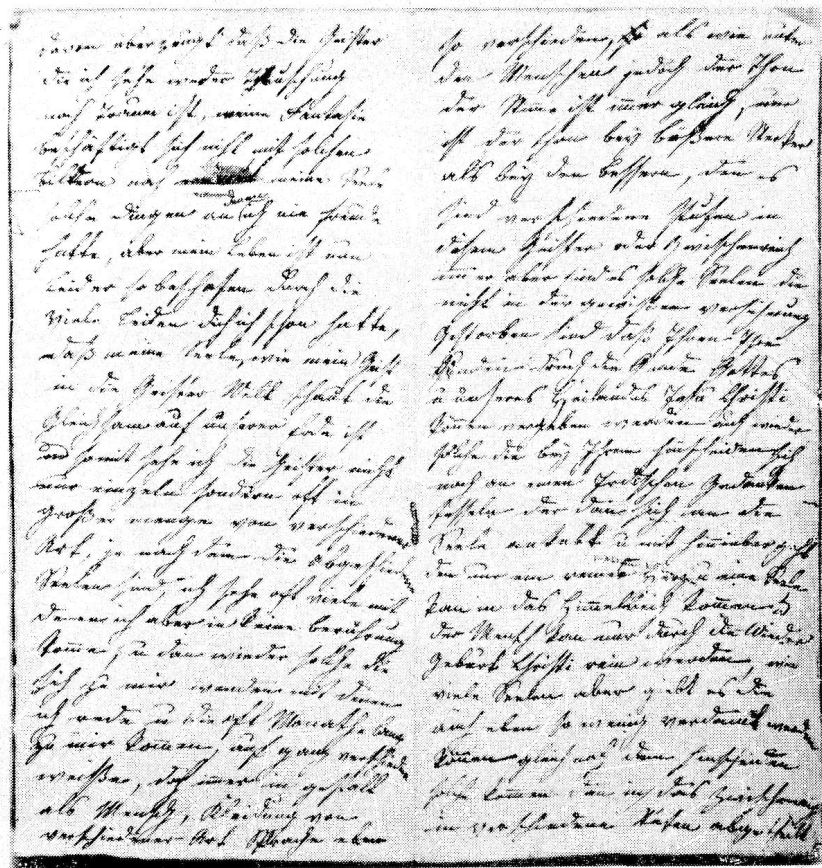 davon überzeugt daß die Geister
die ich sehe weder Theuschung
noch Traum ist, meine Fantasie
beschäftigt sich nicht mit solchen
Bildern noch meine Seele
solche Dingen an davon ich nie freude
hatte, aber mein Leben ist nun
leider so beschafen durch die
viele Leiden die ich schon hatte,
daß meine Seele, wie mein Geist
in die Geister Welt schaut die
Gleichsam auf unserer Erde ist
und somit sehe ich die Geister nicht
nur einzeln sondern oft in
großer menge von verschiedener
Art, je nach dem die abgeschied
Seelen sind, ich sehe oft viele mit
denen ich aber in keine berührung
komme, u dan wieder solche die
sich zu mir wenden mit denen
ich rede u die oft Monathe lang
zu mir komen, auf ganz verschiedne
weisse, doch imer in gestalt
als Mensch, Kleidung von
verschiedener Art Sprache eben
so verschieden, als wie unter
den Menschen jedoch der Thon
der Stime ist imer gleich, nur
ist der thon bey bösßere stärker
als bey den Bessern, den es
sind verschiedene Stufen in
disem Geister oder Zwischenreich
imer aber sind es solche Seelen die
nicht in der gewissen versicherung
Gestorben sind daß Ihnen Ihre
Sünden durch die Gnade Gottes
u unseres Heilandes Jesu Christi
könen vergeben werden auch wieder
solche die bey Ihrem hinscheiden sich
noch an einen Irdischen Gedanken
fesseln der dan sich an die
Seele anhebt u mit hinüber geht
den nur ein reines Herz u eine Seele
kan in das Himmelreich komen u
der Mensch kan nur durch die Wieder
Geburt Christi rein werden, wie
viele Seelen aber giebt es die
auch eben so wenig verdamt werden
könen gleich nach dem hinscheiden
solche komen dan in das Zwischenreich
in verschiedene Stufen abgetheilt